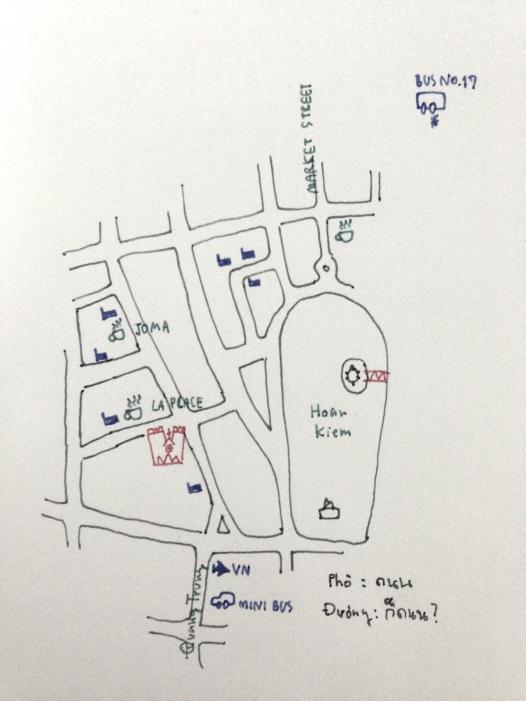 BUS NO.17
MARKET STREET
JOMA
LA PLACE
Hoan
Kiem
VN
MINI BUS
Quang Trung
Phô : ถนน
Đường : ก็ถนน?